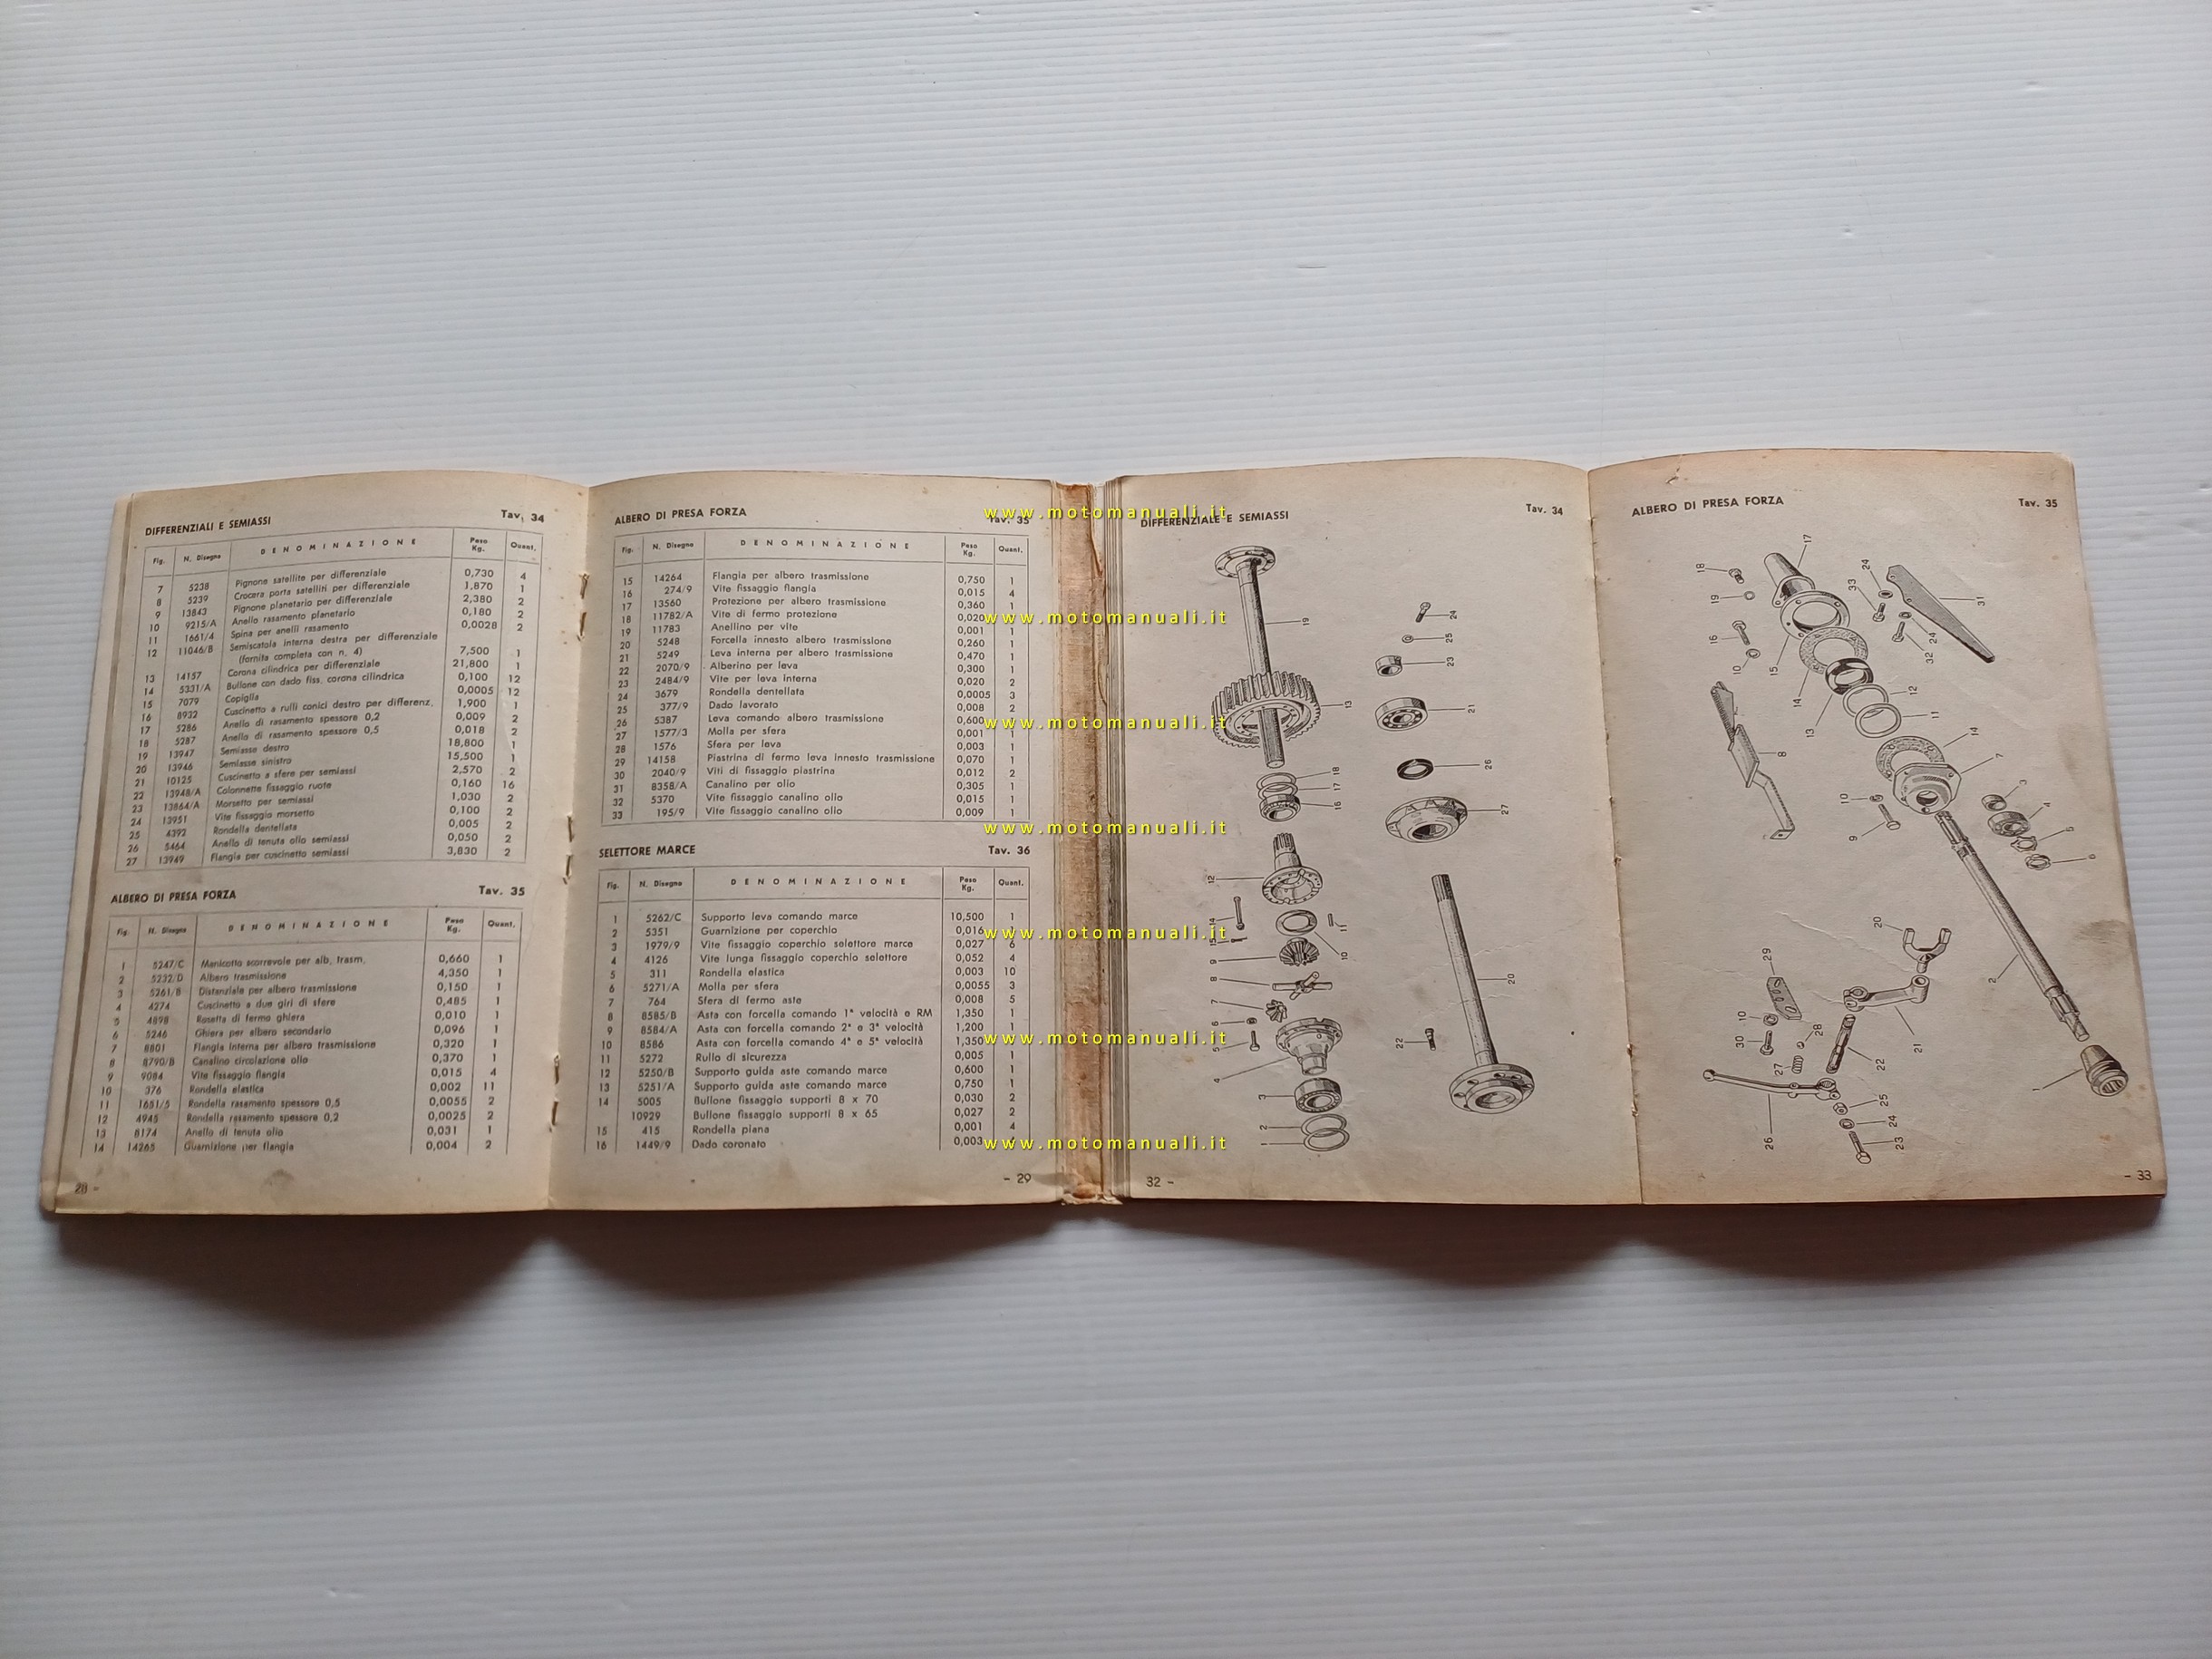 DIFFERENZIALI E SEMIASSI Tav. 34
Fig. N. Disegno DENOMINAZIONE Peso Kg. Quant.
7 5238 Pignone satellite per differenziale 0,730 4
8 5239 Crocera porta satelliti per differenziale 1,870 1
9 13843 Pignone planetario per differenziale 2,380 2
10 9215/A Anello rasamento planetario 0,180 2
11 1661/4 Spina per anelli rasamento 0,0028 2
12 11046/B Semiscatola interna destra per differenziale
(fornita completa con n. 4) 7,500 1
13 14157 Corona cilindrica per differenziale 21,800 1
14 5331/A Bullone con dado fiss. corona cilindrica 0,100 12
15 7079 Copiglia 0,0005 12
16 8932 Cuscinetto a rulli conici destro per differenz. 1,900 1
17 5286 Anello di rasamento spessore 0,2 0,009 2
18 5287 Anello di rasamento spessore 0,5 0,018 2
19 13947 Semiasse destro 18,800 1
20 13946 Semiasse sinistro 15,500 1
21 10125 Cuscinetto a sfere per semiassi 2,570 2
22 13948/A Colonnette fissaggio ruote 0,160 16
23 13864/A Morsetto per semiassi 1,030 2
24 13951 Vite fissaggio morsetto 0,100 2
25 4392 Rondella dentellata 0,005 2
26 5464 Anello di tenuta olio semiassi 0,050 2
27 13949 Flangia per cuscinetto semiassi 3,830 2
ALBERO DI PRESA FORZA Tav. 35
Fig. N. Disegno DENOMINAZIONE Peso Kg. Quant.
1 5247/C Manicotto scorrevole per alb. trasm. 0,660 1
2 5232/D Albero trasmissione 4,350 1
3 5261/B Distanziale per albero trasmissione 0,150 1
4 4274 Cuscinetto a due giri di sfere 0,485 1
5 4898 Rosetta di fermo ghiera 0,010 1
6 5246 Ghiera per albero secondario 0,096 1
7 8801 Flangia interna per albero trasmissione 0,320 1
8 8790/B Canalino circolazione olio 0,370 1
9 9084 Vite fissaggio flangia 0,015 4
10 376 Rondella elastica 0,002 11
11 1651/5 Rondella rasamento spessore 0,5 0,0055 2
12 4945 Rondella rasamento spessore 0,2 0,0025 2
13 8174 Anello di tenuta olio 0,031 1
14 14265 Guarnizione per flangia 0,004 2
28 -
ALBERO DI PRESA FORZA Tav. 35
Fig. N. Disegno DENOMINAZIONE Peso Kg. Quant.
15 14264 Flangia per albero trasmissione 0,750 1
16 274/9 Vite fissaggio flangia 0,015 4
17 13560 Protezione per albero trasmissione 0,360 1
18 11782/A Vite di fermo protezione 0,020
19 11783 Anellino per vite 0,001 1
20 5248 Forcella innesto albero trasmissione 0,260 1
21 5249 Leva interna per albero trasmissione 0,470 1
22 2070/9 Alberino per leva 0,300 1
23 2484/9 Vite per leva interna 0,020 2
24 3679 Rondella dentellata 0,0005 3
25 377/9 Dado lavorato 0,008 2
26 5387 Leva comando albero trasmissione 0,600
27 1577/3 Molla per sfera 0,001 1
28 1576 Sfera per leva 0,003 1
29 14158 Piastrina di fermo leva innesto trasmissione 0,070 1
30 2040/9 Viti di fissaggio piastrina 0,012 2
31 8358/A Canalino per olio 0,305 1
32 5370 Vite fissaggio canalino olio 0,015 1
33 195/9 Vite fissaggio canalino olio 0,009 1
SELETTORE MARCE Tav. 36
Fig. N. Disegno DENOMINAZIONE Peso Kg. Quant.
1 5262/C Supporto leva comando marce 10,500 1
2 5351 Guarnizione per coperchio 0,016
3 1979/9 Vite fissaggio coperchio selettore marce 0,027 6
4 4126 Vite lunga fissaggio coperchio selettore 0,052 4
5 311 Rondella elastica 0,003 10
6 5271/A Molla per sfera 0,0055 3
7 764 Sfera di fermo aste 0,008 5
8 8585/B Asta con forcella comando 1ª velocità e RM 1,350 1
9 8584/A Asta con forcella comando 2ª e 3ª velocità 1,200 1
10 8586 Asta con forcella comando 4ª e 5ª velocità 1,350
11 5272 Rullo di sicurezza 0,005 1
12 5250/B Supporto guida aste comando marce 0,600 1
13 5251/A Supporto guida aste comando marce 0,750 1
14 5005 Bullone fissaggio supporti 8 x 70 0,030 2
10929 Bullone fissaggio supporti 8 x 65 0,027 2
15 415 Rondella piana 0,001 4
16 1449/9 Dado coronato 0,003
- 29
www.motomanuali.it
www.motomanuali.it
www.motomanuali.it
www.motomanuali.it
www.motomanuali.it
www.motomanuali.it
www.motomanuali.it
DIFFERENZIALE E SEMIASSI Tav. 34
19
24
25
23
13
21
18
17
16
26
27
12
14
15
11
10
9
8
7
6
5
4
3
2
1
20
22
32 -
ALBERO DI PRESA FORZA Tav. 35
17
18
24
33
19
31
16
10
24
32
15
14
12
13
11
14
8
7
10
9
3
4
5
6
20
29
2
10
28
30
21
27
22
1
25
24
26
23
- 33